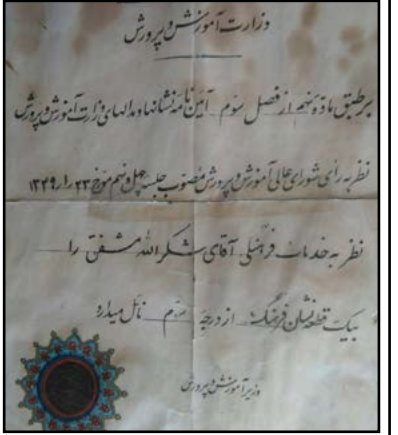 وزارت آموزش و پرورش
برطبق ماده نهم از فصل سوم آئین نامه نشانها و مدالهای وزارت آموزش و پرورش
نظر به رأی شورای عالی آموزش و پرورش مصوب جلسه چهل و نهم مورخ ۲۳ ر۱ ر ۱۳۴۹
نظر به خدمات فرهنگی آقای شکرالله مشفق را
بیک قطعه نشان فرهنگ از درجه نائل میدارد
وزیر آموزش و پرورش